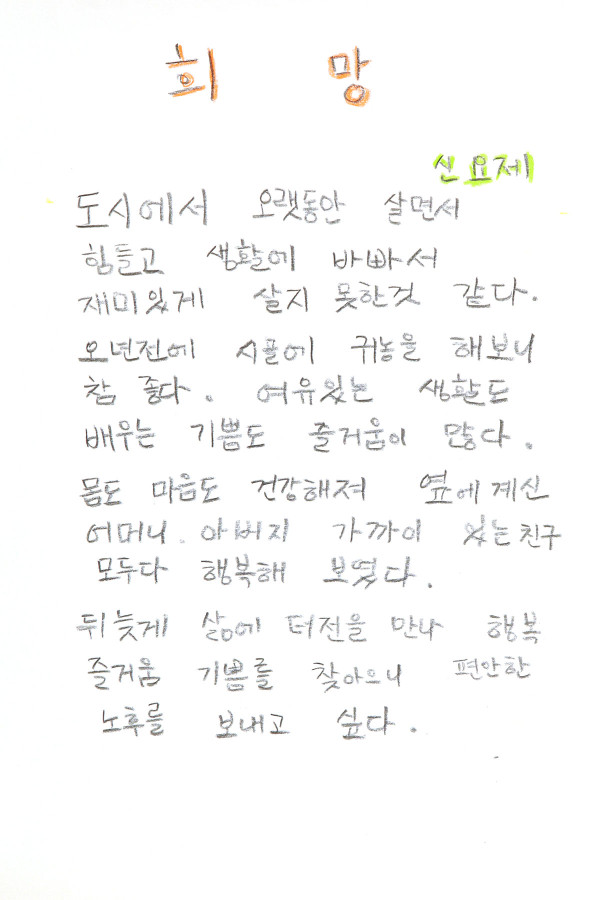 희 망
신요제
도시에서 오랫동안 살면서
힘들고 생활에 바빠서
재미있게 살지 못한것 같다.
오년전에 시골에 귀농을 해보니
참 좋다. 여유있는 생활도
배우는 기쁨도 즐거움이 많다.
몸도 마음도 건강해져 옆에 계신
어머니. 아버지 가까이 있는 친구
모두다 행복해 보였다.
뒤늦게 삶에 터전을 만나 행복
즐거움 기쁨를 찾아으니 편안한
노후를 보내고 싶다.